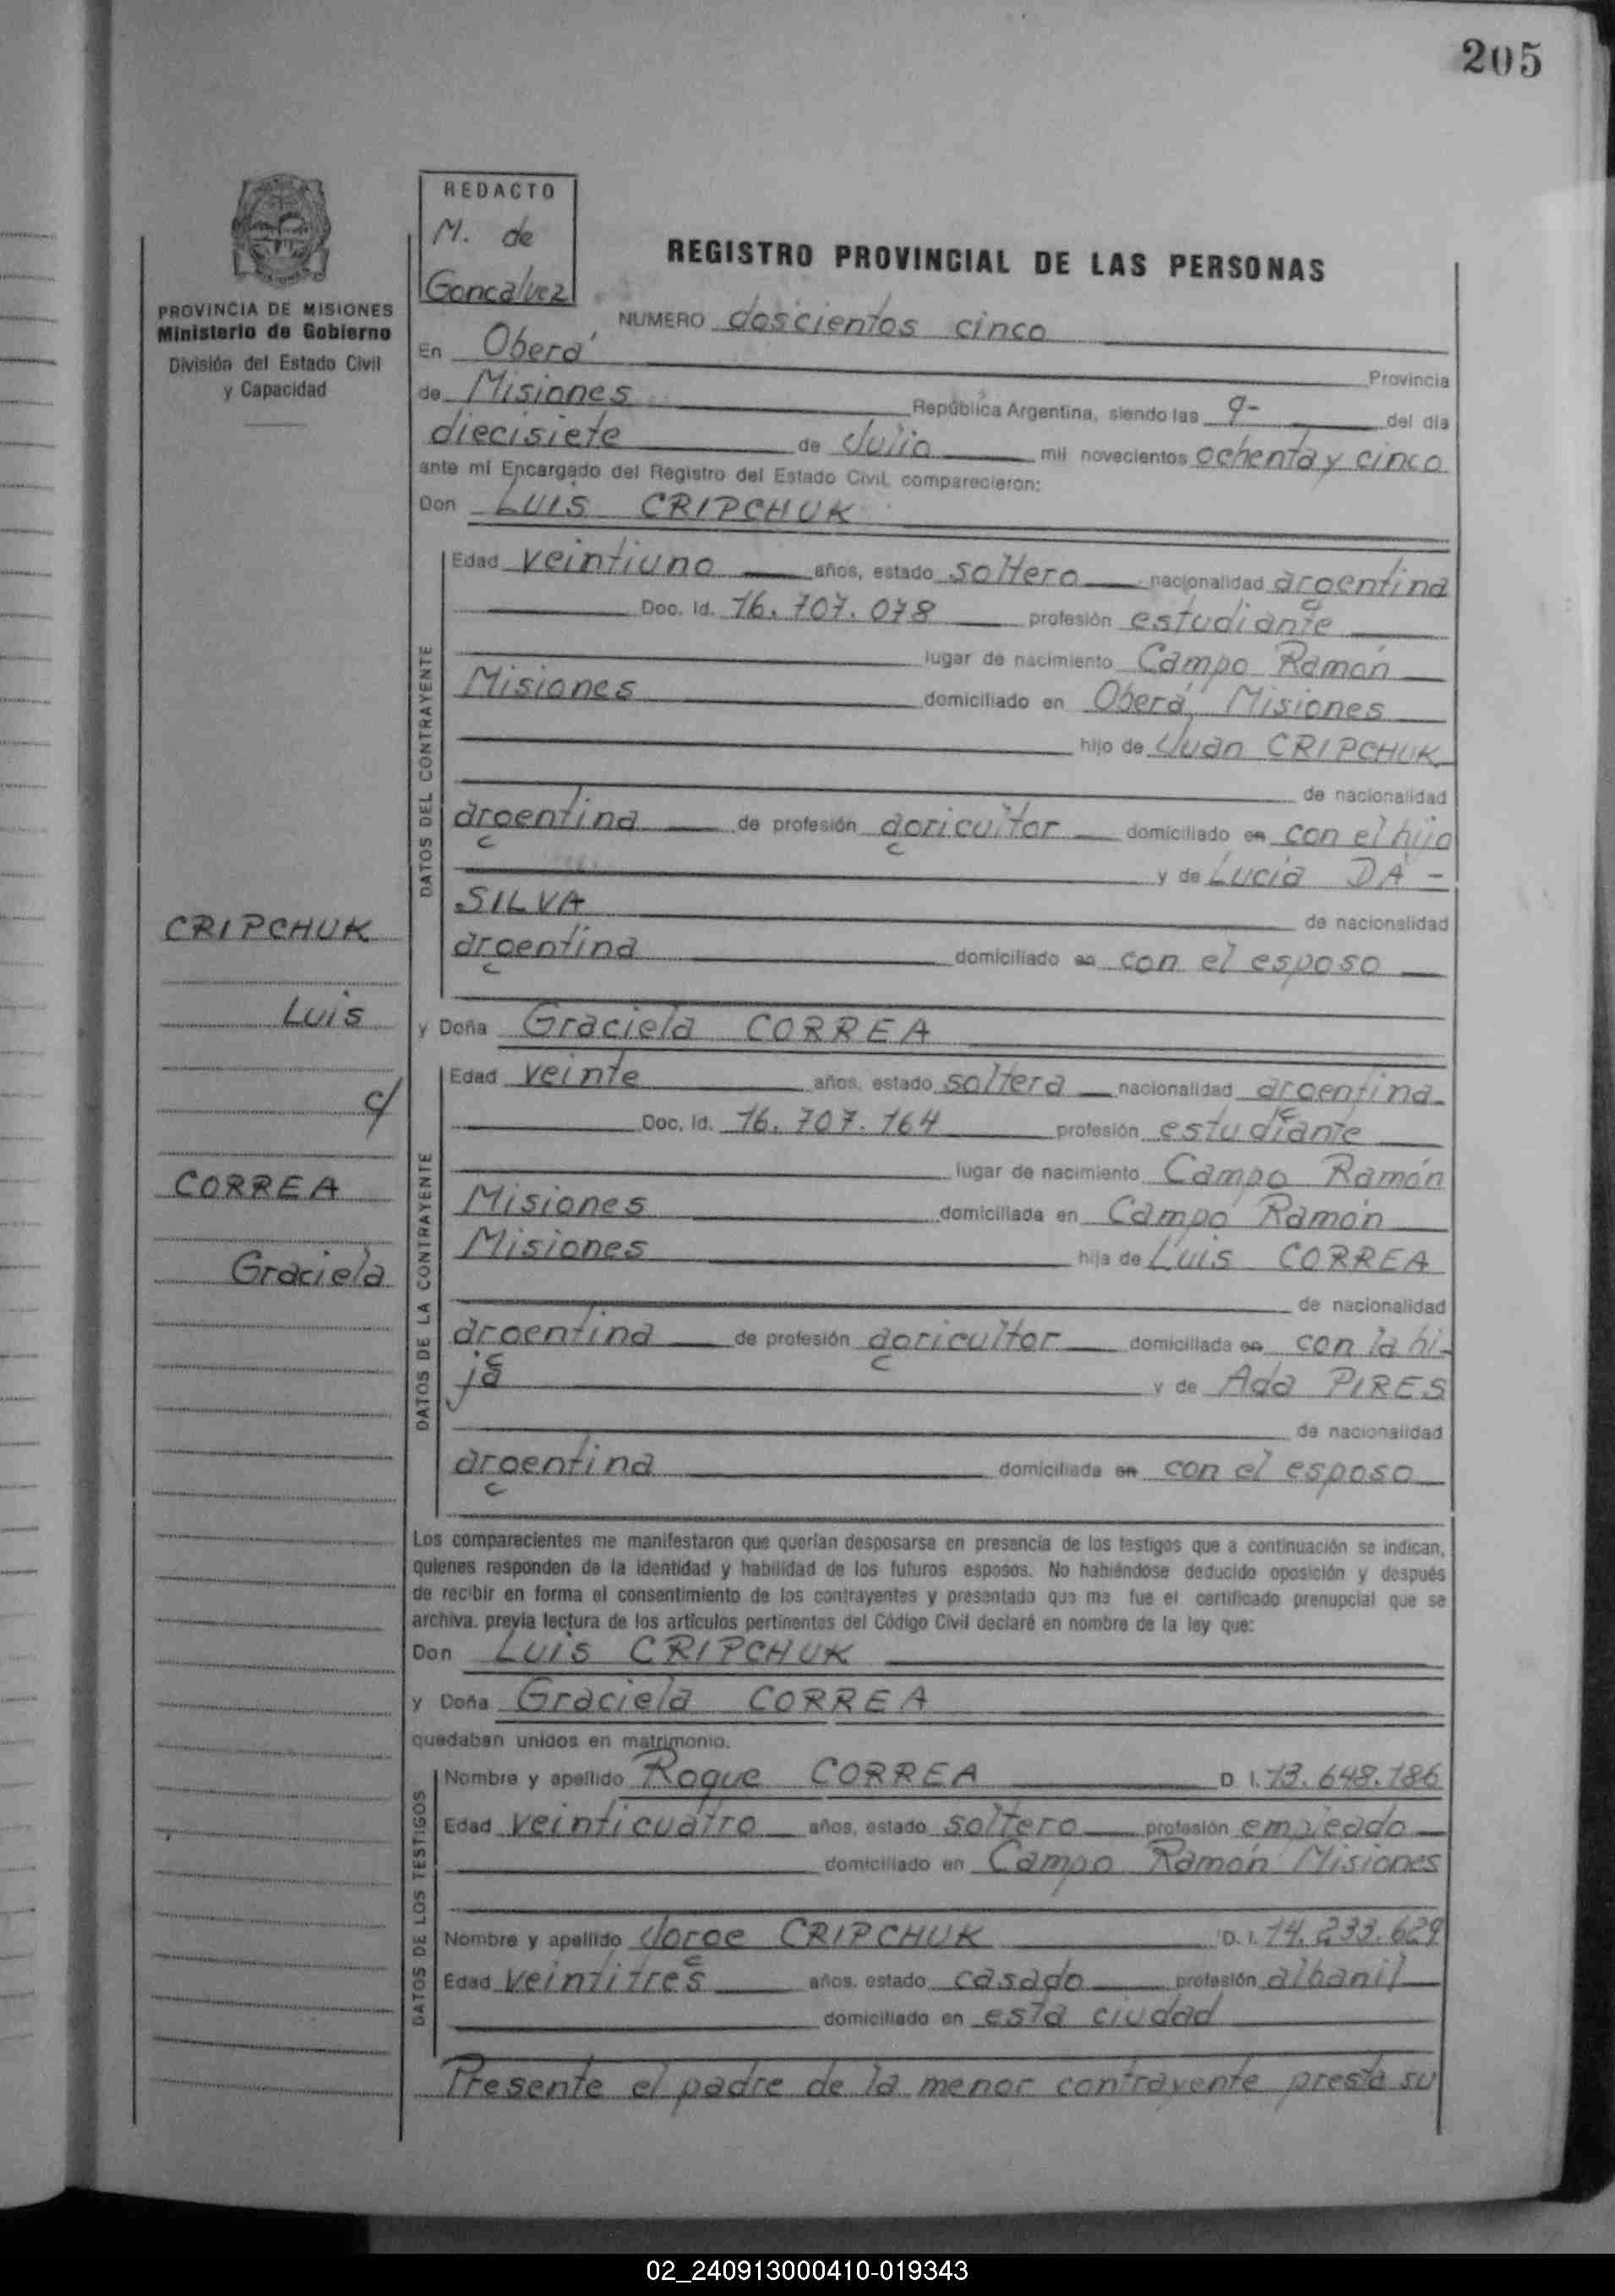 205
REDACTO
M. de
Goncalvez
PROVINCIA DE MISIONES
Ministerio de Gobierno
División del Estado Civil
y Capacidad
REGISTRO PROVINCIAL DE LAS PERSONAS
NUMERO doscientos cinco
En Oberá Provincia
de Misiones República Argentina, siendo las 9- del día
diecisiete de Julio mil novecientos ochenta y cinco
ante mí Encargado del Registro del Estado Civil, comparecieron:
Don LUIS CRIPCHUK
DATOS DEL CONTRAYENTE
Edad veintiuno años, estado soltero nacionalidad argentina
Doc. Id. 16.707.078 profesión estudiante
lugar de nacimiento Campo Ramón
Misiones domiciliado en Oberá, Misiones
hijo de Juan CRIPCHUK
de nacionalidad
argentina de profesión agricultor domiciliado en con el hijo
y de Lucia DA -
SILVA de nacionalidad
argentina domiciliado en con el esposo
y Doña Graciela CORREA
DATOS DE LA CONTRAYENTE
Edad veinte años, estado soltera nacionalidad argentina
Doc. Id. 16.707.164 profesión estudiante
lugar de nacimiento Campo Ramón
Misiones domiciliada en Campo Ramón
Misiones hija de Luis CORREA
de nacionalidad
argentina de profesión agricultor domiciliada en con la hi-
ja y de Ada PIRES
de nacionalidad
argentina domiciliada en con el esposo
CRIPCHUK
Luis
c/
CORREA
Graciela
Los comparecientes me manifestaron que querían desposarse en presencia de los testigos que a continuación se indican,
quienes responden de la identidad y habilidad de los futuros esposos. No habiéndose deducido oposición y después
de recibir en forma el consentimiento de los contrayentes y presentado que me fue el certificado prenupcial que se
archiva, previa lectura de los artículos pertinentes del Código Civil declaré en nombre de la ley que:
Don LUIS CRIPCHUK
y Doña Graciela CORREA
quedaban unidos en matrimonio.
DATOS DE LOS TESTIGOS
Nombre y apellido Roque CORREA D. I. 13.648.186
Edad veinticuatro años, estado soltero profesión empleado
domiciliado en Campo Ramón Misiones
Nombre y apellido Jorge CRIPCHUK D. I. 14.233.629
Edad veintitres años, estado casado profesión albanil
domiciliado en esta ciudad
Presente el padre de la menor contrayente presta su
02_240913000410-019343